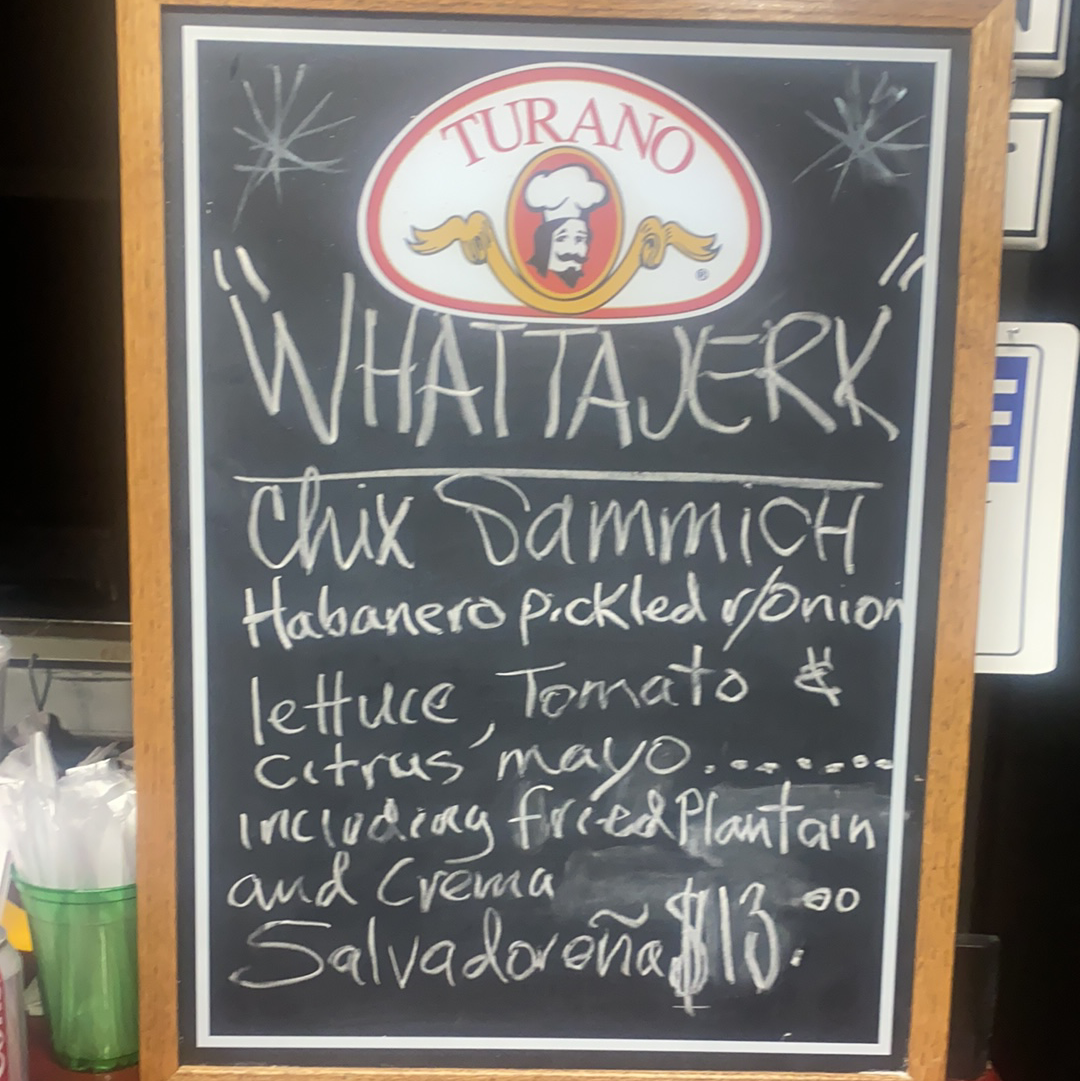 TURANO
®
"WHATTAJERK"
Chix SammicH
Habanero pickled r/onion
lettuce, Tomato &
citrus mayo.......
including fried Plantain
and Crema
Salvadoreña $13.00